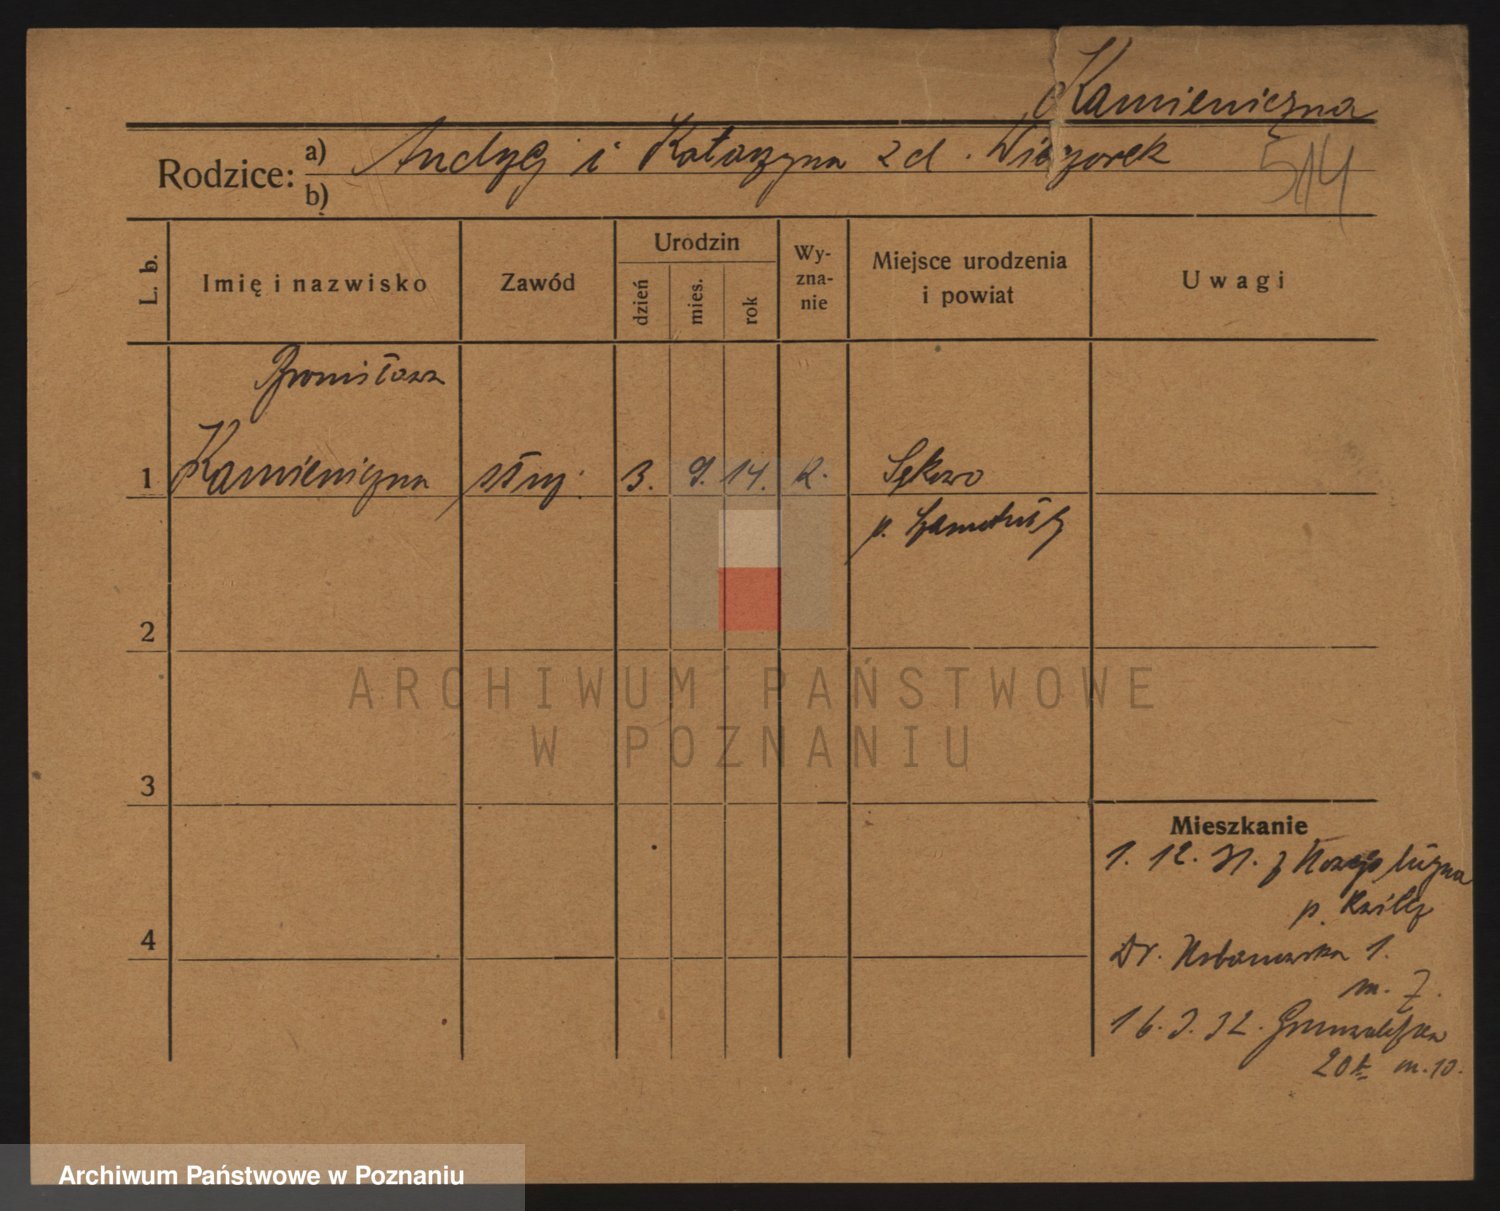 Kamieniczna
514
Rodzice: a) Andrzej i Katarzyna z d. Wieczorek
b)
L. b.
Imię i nazwisko
Zawód
Urodzin
dzień
mies.
rok
Wy-
zna-
nie
Miejsce urodzenia
i powiat
Uwagi
Bronisława
1 Kamieniczna służ. 3. 9. 14. k. Sękowo
p. Szamotuły
2
3
4
Mieszkanie
1. 12. 31. z
p.
Dr. 1.
m. 7.
16. 3. 32. Grunwaldzka
20a m. 10.
ARCHIWUM PAŃSTWOWE
W POZNANIU
Archiwum Państwowe w Poznaniu